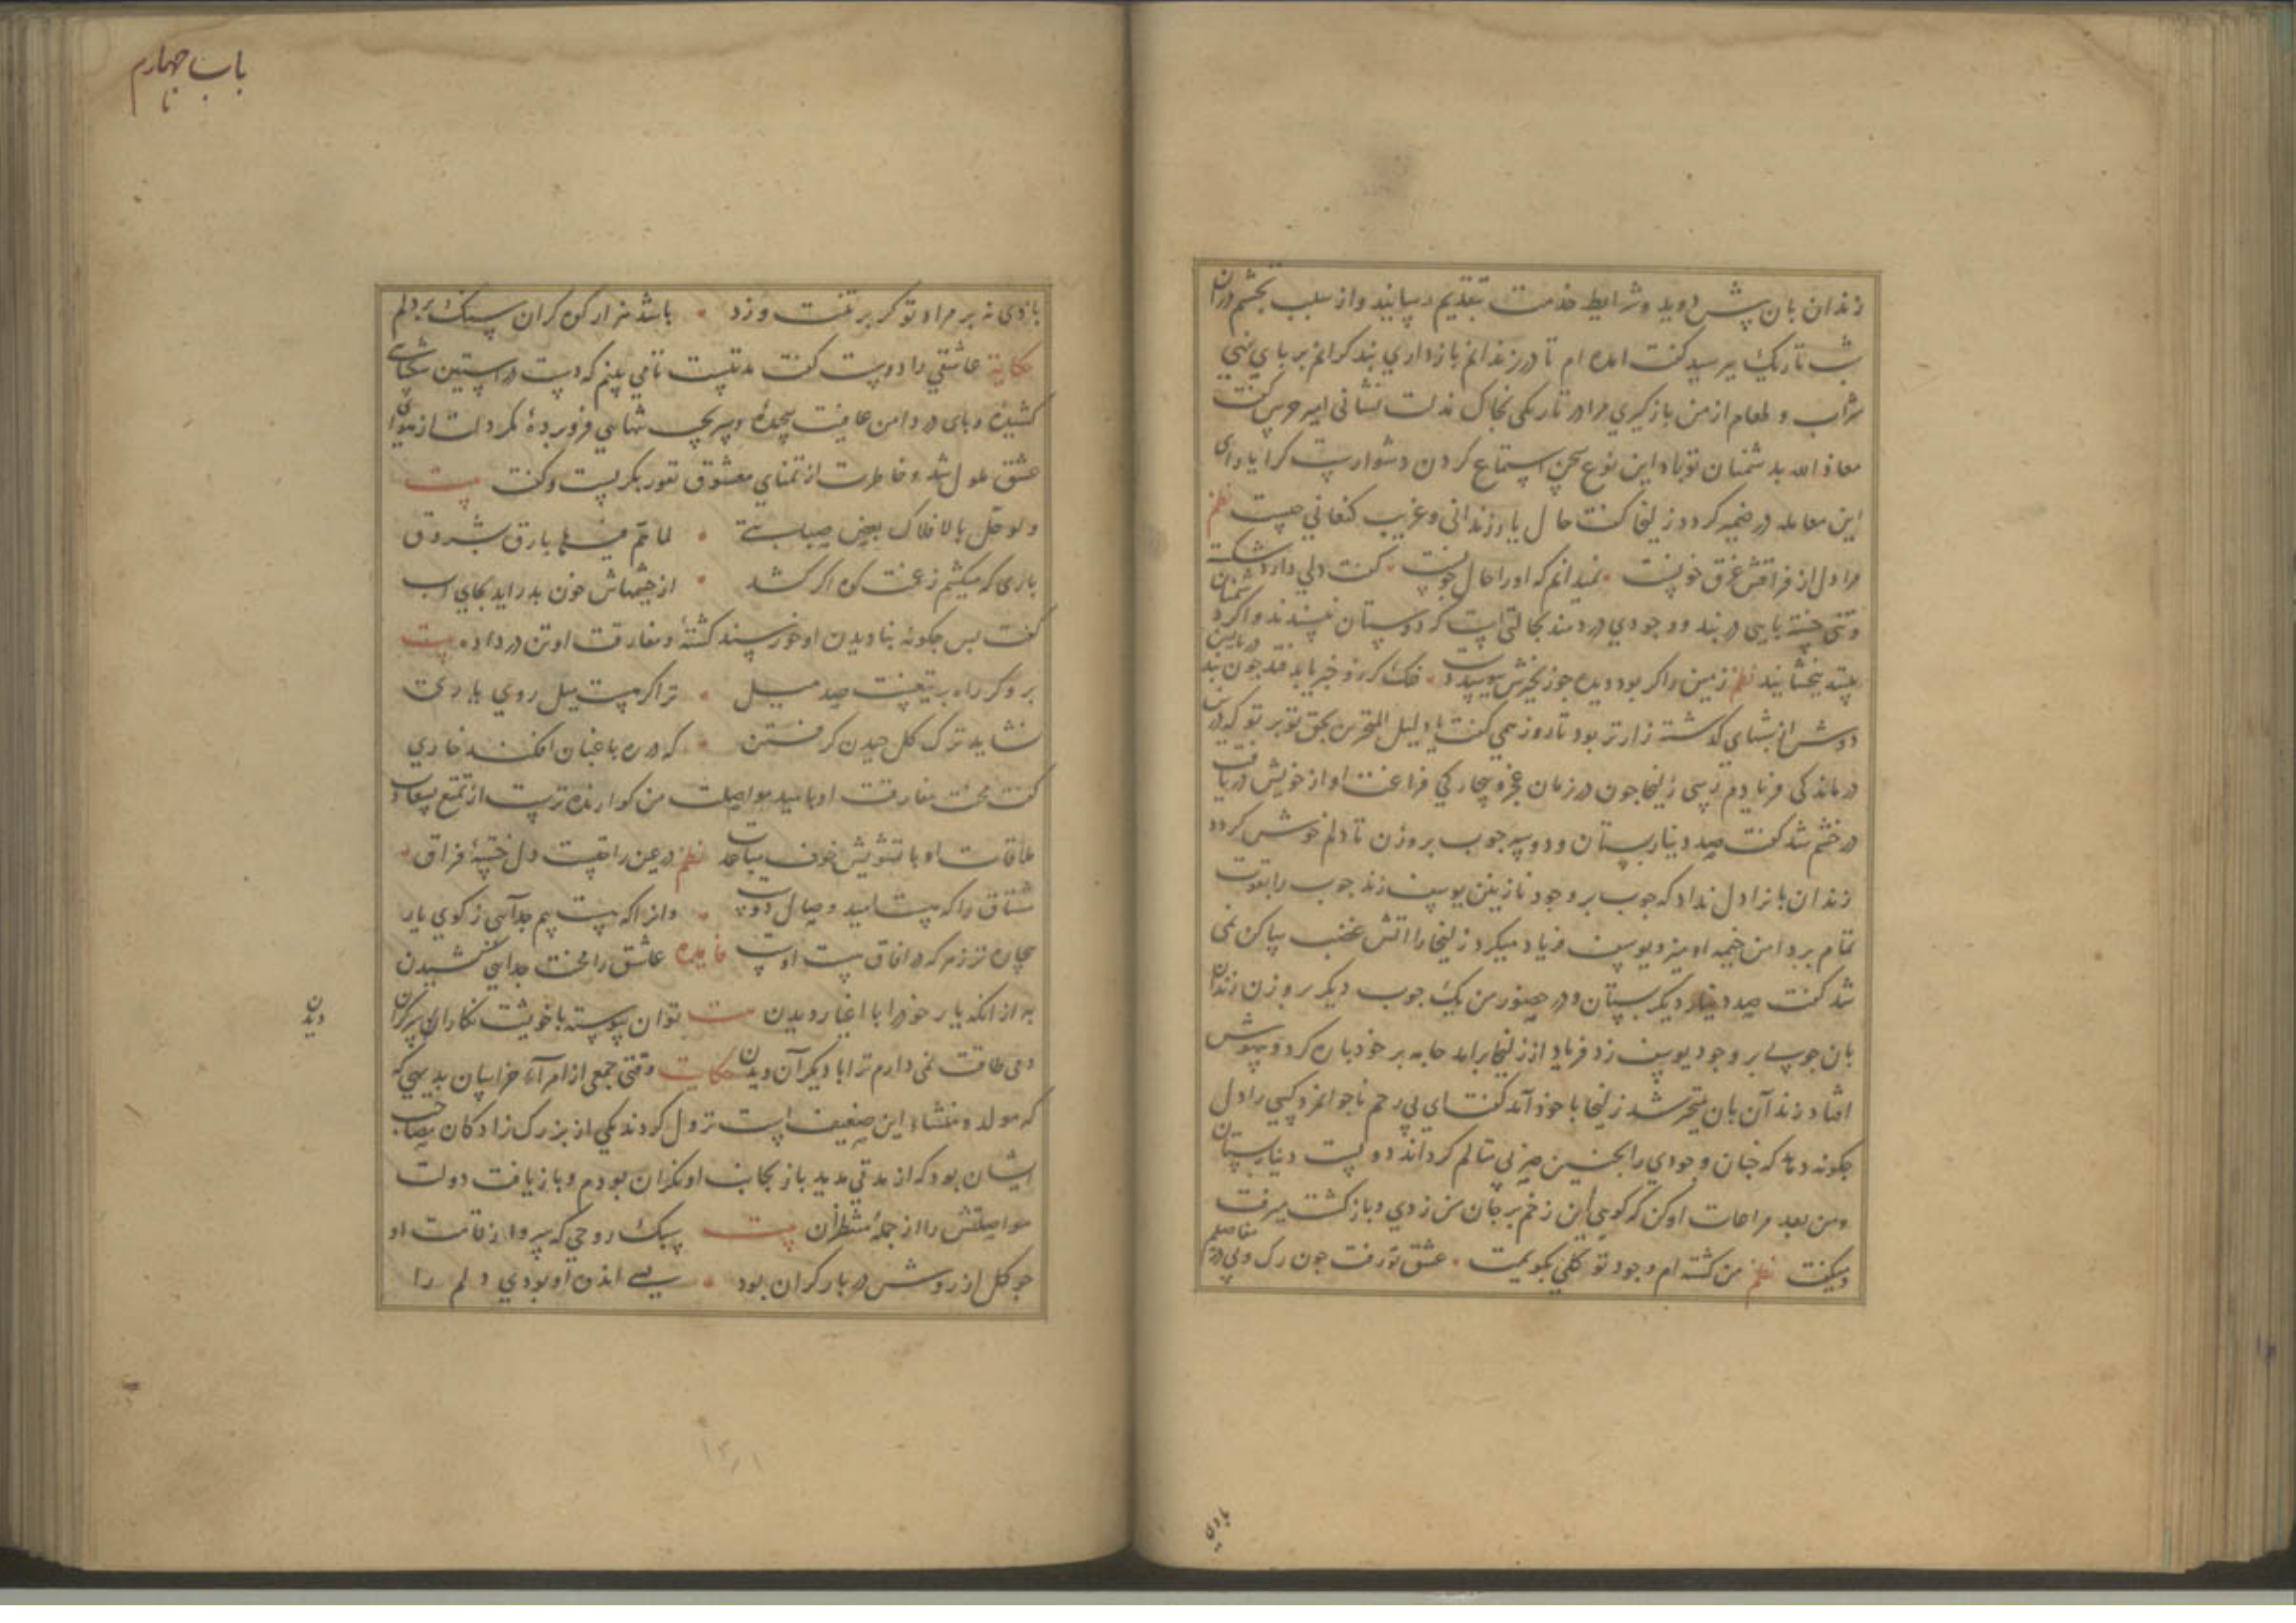 زندان بان پیش دوید و شرایط خدمت بتقدیم رسانید و از سبب تجشم دران
شب تاریک پرسید گفت امده ام تا در زندانم بازداری بند گرانم بر پای نهی
شراب و طعام از من بازگیری مرا در تاریکی بخاک مذلت نشانی امیر حرس گفت
معاذ الله بدشمنان تو باد این نوع سخن استماع کردن دشوارست کرا یارای
این معامله در ضمیر گردد زلیخا گفت حال یار زندانی و غریب کنعانی چیست نظم
مرا دل از فراقش غرق خونست نمیدانم که او را حال چونست گفت دلی دارد
و تنی خسته پایی در بند و وجودی دردمند بحالتی است که دوستان نپسندند و اگر دشمنان
ببینند ببخشایند نظم زمین را گر بود دیده چو زنجیرش ببوسد
دوش از شبهای گذشته زارتر بود تا روز همی گفت یا دلیل المتحیرین بحق تو بر تو که درین
درماندگی فریادم رسی زلیخا چون در زمان عجز و بیچارگی فراغت او از خویش دریافت
در خشم شد گفت صد دینار بستان و دو سه چوب بر وزن تا دلم خوش گردد
زندان بانرا دل نداد که چوب بر وجود نازنین یوسف زند چوب را بقوت
تمام بر دامن خیمه او میزد یوسف فریاد میکرد زلیخا را اتش غضب ساکن نمی
شد گفت صد دینار دیگر بستان و در حضور من یک چوب دیگر بر وزن زندان
بان چوبی بر وجود یوسف زد فریاد از زلیخا برامد جامه بر خود پاره کرد و بیهوش
افتاد زندان بان متحیر شد زلیخا با خود آمد گفت ای بی رحم ناجوانمرد کسی را دل
چگونه دهد که چنان وجودی را بچنین ضربی متالم گرداند دویست دینار بستان
و من بعد مراعات او کن که گویی این زخم بر جان من زدی و بازگشت میرفت
و میگفت نظم من کشته ام وجود تو کلی بگویمت عشق تو رفت چون رگ و پی در مفاصلم
بادی
باب چهارم
بادی نه بر مراد تو گر بر تنت وزد باشد هزار کوه گران سنگ بر دلم
حکایة عاشقی را دوست گفت مدتیست تا می بینم که دست در استین شکیبایی
کشیده و پای در دامن عافیت پیچیده و سر بجیب تنهایی فرو برده مگر دلت از هوای
عشق ملول شد و خاطرت از تمنای معشوق نفور بگریست و گفت بیت
ولو حل بالافلاک بعض صبابتی لما تم فیها بارق بشروق
باری که میکشم ز غمت کوه اگر کشد از چشمهاش خون بدر اید بجای اب
گفت پس چگونه بنادیدن او خورسند گشته و مفارقت او تن در داده بیت
برو گر راه بر تیغت صد میل ترا گر هست میل روی یاری
نشاید ترک گل چیدن گرفتن که در ره باغبان افکند خاری
گفت محنت مفارقت او بامید مواصلت من گوارنده ترست از تمتع بسعادت
ملاقات او با تشویش خوف مباعدت نظم در عین راحتست دل خستهٔ فراق
مشتاق را که هست امید وصال دوست و انرا که هست بیم جدایی ز کوی یار
بیچاره تر ز هر که در افاق هست اوست فایده عاشق را محنت جدایی کشیدن
به از انکه یار خود را با اغیار دیدن بیت توان پیوسته با خویشت نگارا بر کران
دیدن
دمی طاقت نمی دارم ترا با دیگران دیدن حکایت وقتی جمعی از امراء خراسان بدیهی که
که مولد و منشاء این ضعیف است نزول کردند یکی از بزرگ زادگان مصاحب
ایشان بود که از مدتی مدید باز بجانب او نگران بودم و بازیافت دولت
مواصلتش را از جملهٔ منتظران بیت سبک روحی که سرو از قامت او
چو گل از روش در بار گران بود بسی اندوه او بودی دلم را